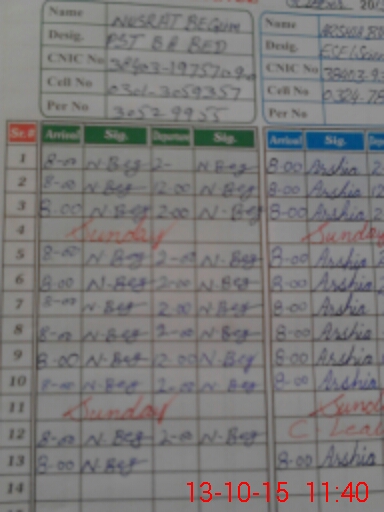 Name NUSRAT BEGUM Name ARSHIA
Desig. PST BA BED Desig.
CNIC No CNIC No
Cell No 0301-3059357 Cell No
Per No 30529955 Per No
Sr.# Arrival Sig. Departure Sig. Arrival Sig.
1 8-00 N-Beg 2- N Beg 8-00 Arshia 2
2 8-00 N-Beg 12.00 N-Beg 8-00 Arshia 12
3 8-00 N-Beg 2-00 N-Beg 8-00 Arshia 2
4 Sunday Sunday
5 8-00 N-Beg 2-00 N-Beg 8-00 Arshia
6 8-00 N-Beg 2-00 N-Beg 8-00 Arshia
7 8-00 N-Beg 2.00 N-Beg 8-00 Arshia
8 8-00 N-Beg 2-00 N-Beg 8-00 Arshia
9 8-00 N-Beg 2-00 N-Beg 8-00 Arshia
10 8-00 N-Beg 2-00 N-Beg 8-00 Arshia
11 Sunday
12 8-00 N-Beg 2-00 N-Beg
13 8-00 N-Beg 8-00 Arshia
14
13-10-15 11:40